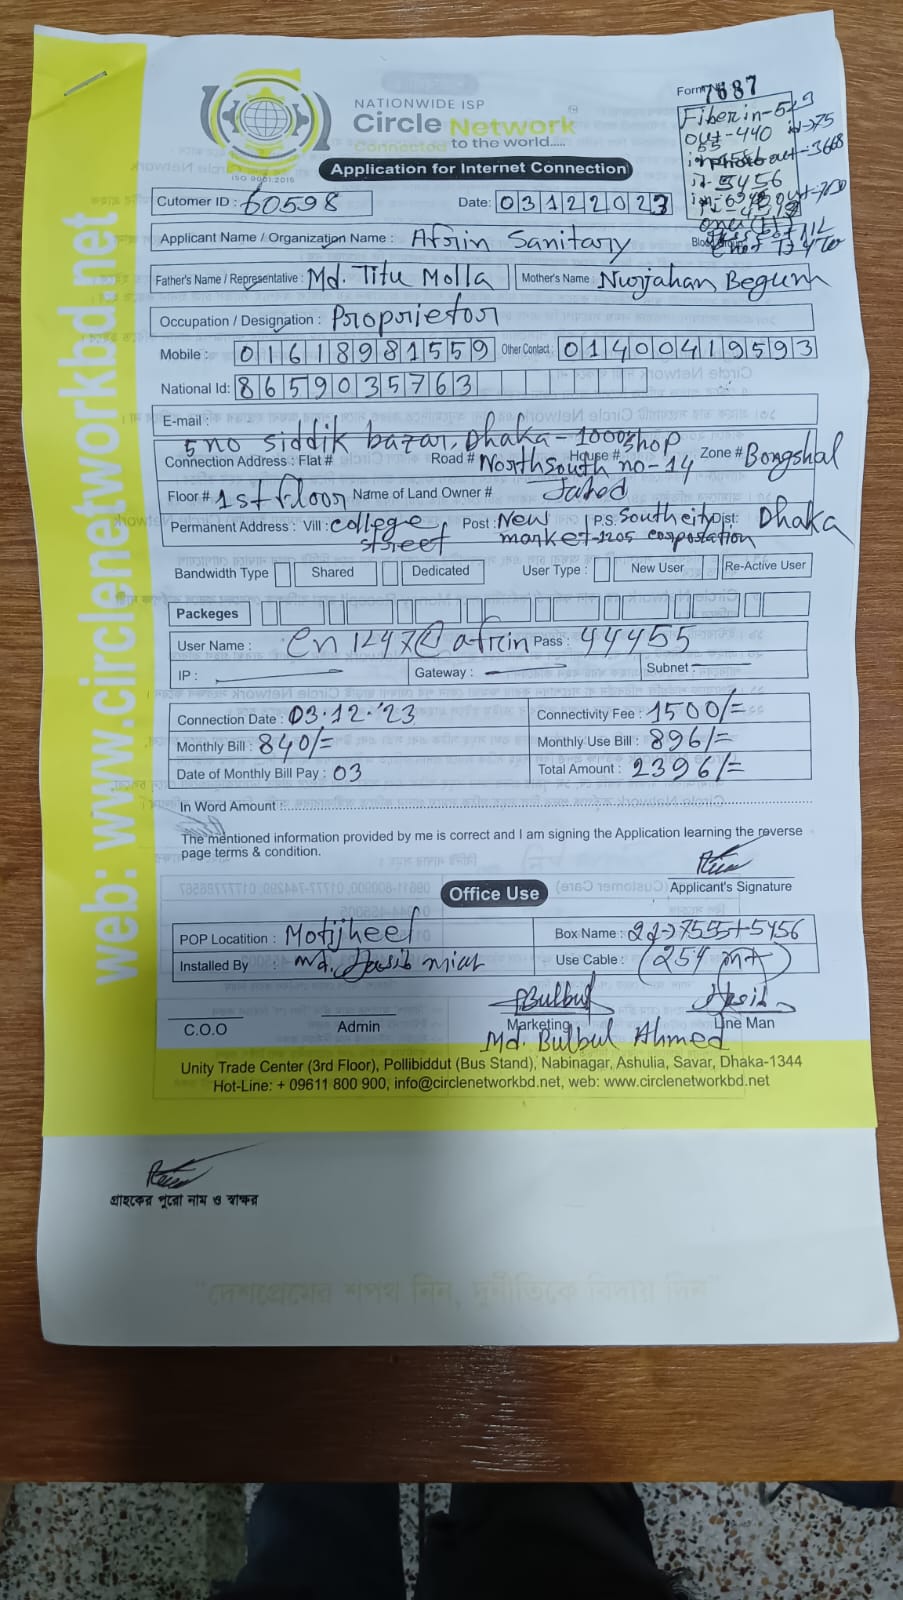 NATIONWIDE ISP
Circle Network
Connected to the world.....
ISO 9001:2015
Application for Internet Connection
Form No 7687
Fiber in-529
out-440 id->75
5456
Cutomer ID : 60598
Date: 03122023
Applicant Name / Organization Name : Afrin Sanitary
Father's Name / Representative : Md. Titu Molla
Mother's Name : Nurjahan Begum
Occupation / Designation : Proprietor
Mobile : 01618981559 Other Contact : 01400419593
National Id: 8659035763
E-mail :
5 no siddik bazar, Dhaka-1000 shop
Connection Address : Flat # Road # North South House # no-14 Zone # Bongshal
Floor # 1st floor Name of Land Owner # Jahed
Permanent Address : Vill : college street Post : New market-1205 P.S. South city corporation Dist: Dhaka
Bandwidth Type Shared Dedicated User Type : New User Re-Active User
Packeges
User Name : cn1247@afrin Pass : 44455
IP : Gateway : Subnet
Connection Date : 03.12.'23 Connectivity Fee : 1500/=
Monthly Bill : 840/= Monthly Use Bill : 896/=
Date of Monthly Bill Pay : 03 Total Amount : 2396/=
In Word Amount :
The mentioned information provided by me is correct and I am signing the Application learning the reverse
page terms & condition.
Applicant's Signature
Office Use
POP Locatition : Motijheel Box Name : 22->7555+5456
Installed By : Md. Hasib miah Use Cable : 254 mt
Bulbul Hasib
C.O.O Admin Marketing Line Man
Md. Bulbul Ahmed
Unity Trade Center (3rd Floor), Pollibiddut (Bus Stand), Nabinagar, Ashulia, Savar, Dhaka-1344
Hot-Line: + 09611 800 900, info@circlenetworkbd.net, web: www.circlenetworkbd.net
web: www.circlenetworkbd.net
গ্রাহকের পুরো নাম ও স্বাক্ষর
"দেশপ্রেমের শপথ নিন, দুর্নীতিকে বিদায় দিন"